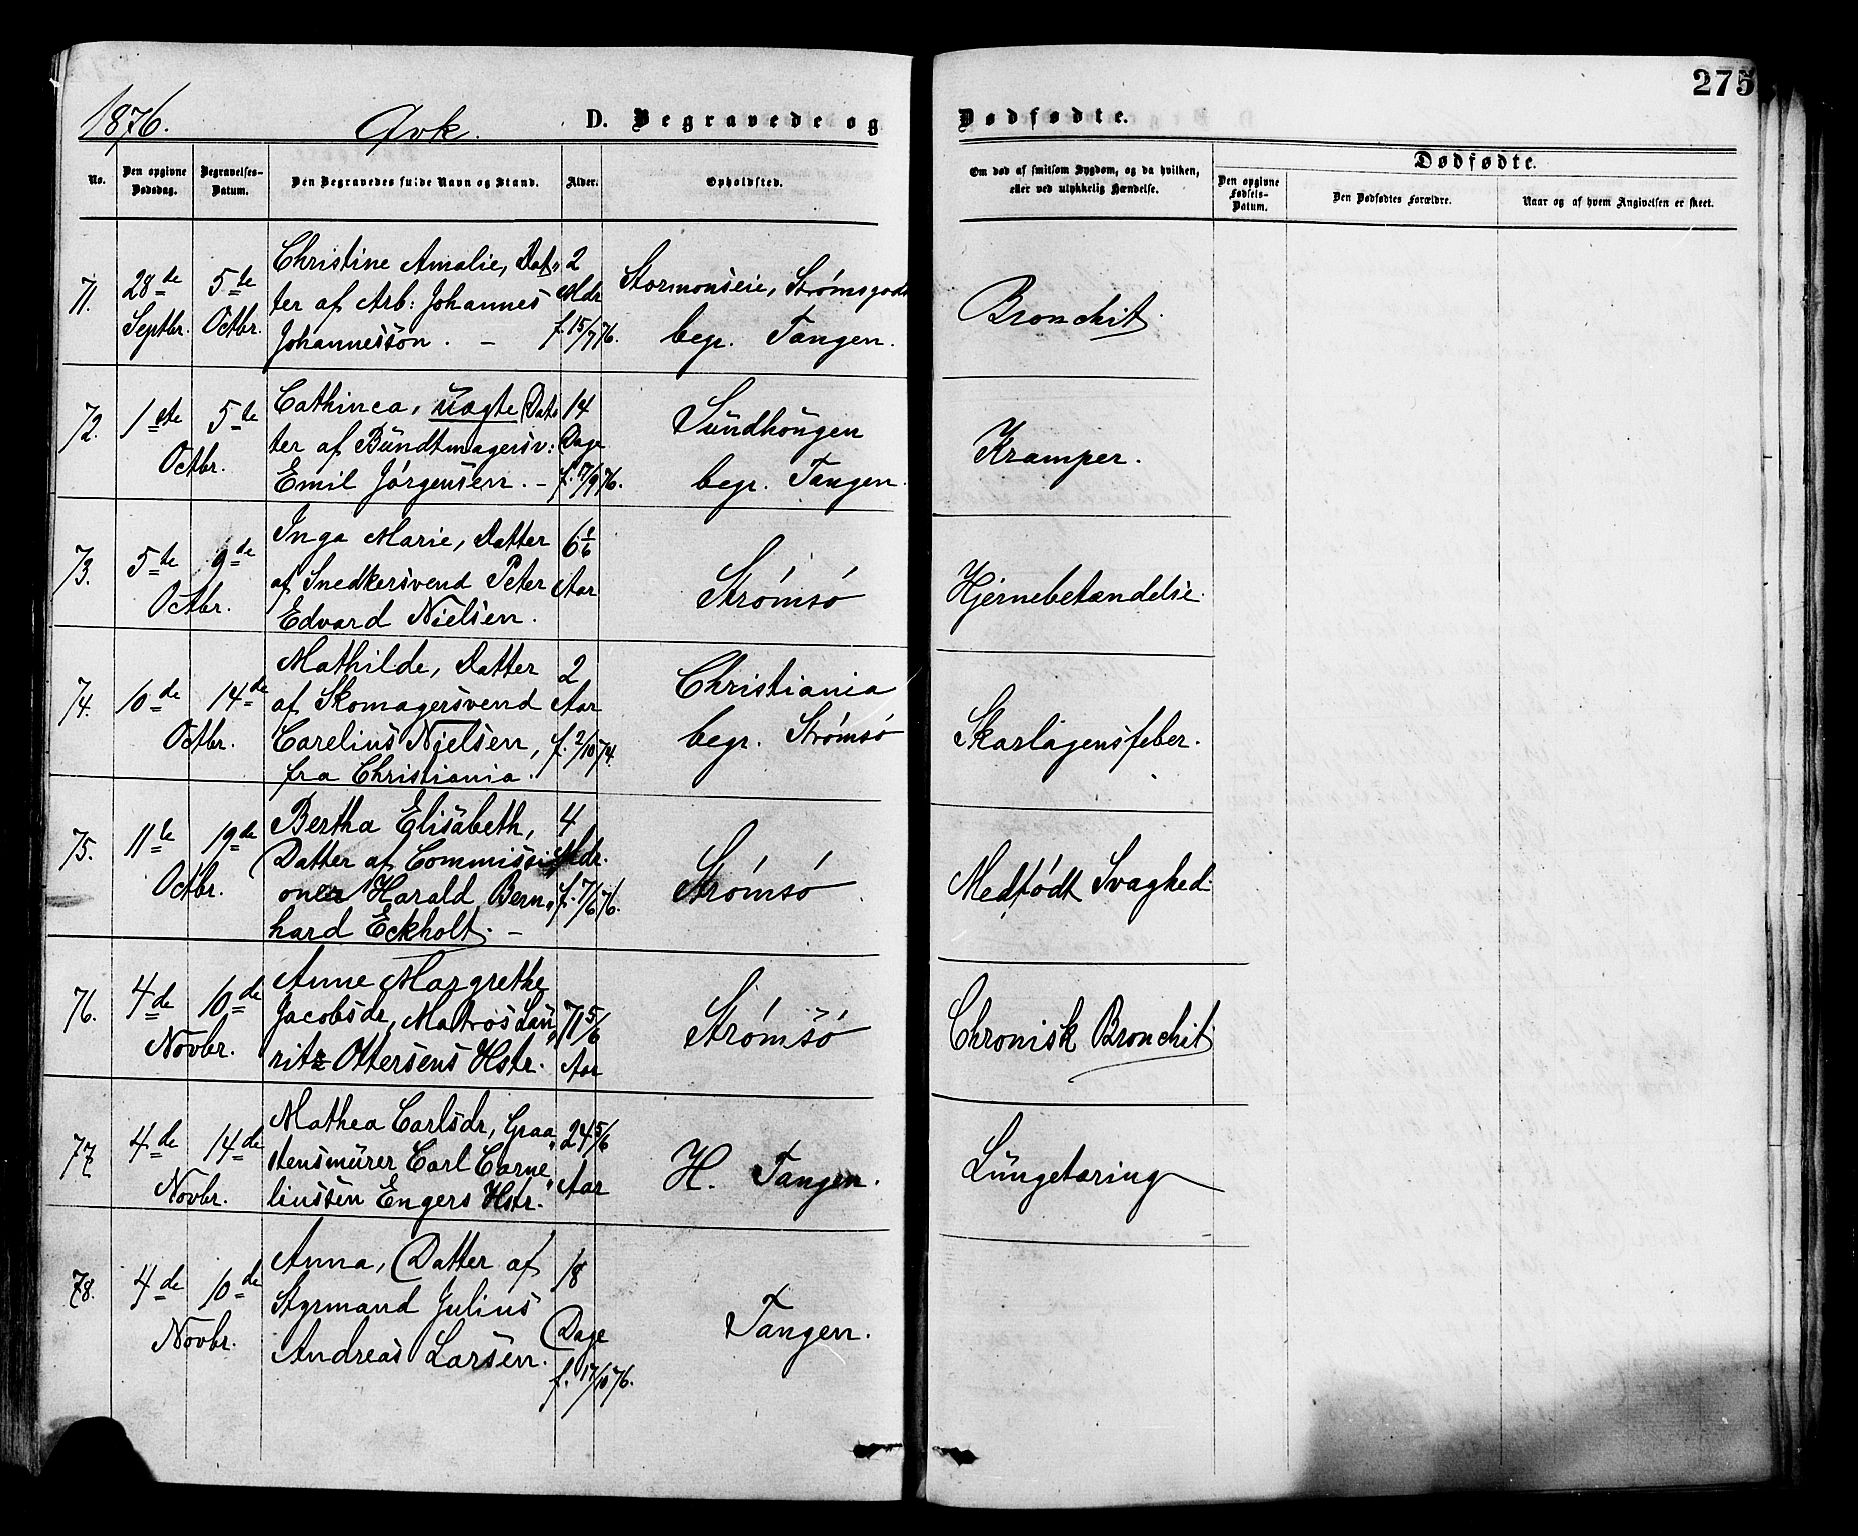 275
1876. Qvk. D. Begravede og Dødfødte.
No. Den opgivne Dødsdag. Begravelses-Datum. Den Begravedes fulde Navn og Stand. Alder. Opholdsted. Om død af smitsom Sygdom, og da hvilken, eller ved ulykkelig Hændelse. Dødfødte.
Den opgivne Fødsels-Datum. Den Dødfødtes Forældre. Naar og af hvem Angivelsen er skeet.
71. 28de Septbr. 5te Octbr.
Christine Amalie, Dat-
ter af Arb: Johannes
Johannesson. –
2 Mdr f. 15/7 76.
Strømsgod
begr. Tangen.
Bronchit.
72. 1ste 5te Octbr.
Cathinca, uægte Dat-
ter af Bŭndtmagersv:
Emil Jørgensen. –
14 Dage f. 17/9 76.
Sŭndhaŭgen
begr. Tangen.
Kramper.
73. 5te 9de Octbr.
Inga Marie, Datter
af Snedkersvend Peter
Edvard Nielsen.
6 1/6 Aar
Strømsø
Hjernebetændelse.
74. 10de 14de Octbr.
Mathilde, Datter
af Skomagersvend
Carelius Nielsen,
fra Christiania.
2 Aar f. 2/10 74.
Christiania
begr. Strømsø
Skarlagensfeber.
75. 11te 19de Octbr.
Bertha Elisabeth,
Datter af Commissi-
oner Harald Bern-
hard Eckholt. –
4 Mdr. f. 7/6 76.
Strømsø
Medfødt Svaghed.
76. 4de 10de Novbr.
Anne Margrethe
Jacobsdr, Matros Laŭ-
ritz Ottersens Hstr.
71 5/6 Aar
Strømsø
Chronisk Bronchit.
77. 4de 14de Novbr.
Mathea Carlsdr, Graa-
stensmŭrer Carl Corne-
liussen Engers Hstr.
24 5/6 Aar
H. Tangen.
Lŭngetæring
78. 4de 10de Novbr.
Anna, Datter af
Styrmand Julius
Andreas Larsen.
18 Dage f. 17/10 76.
Tangen.